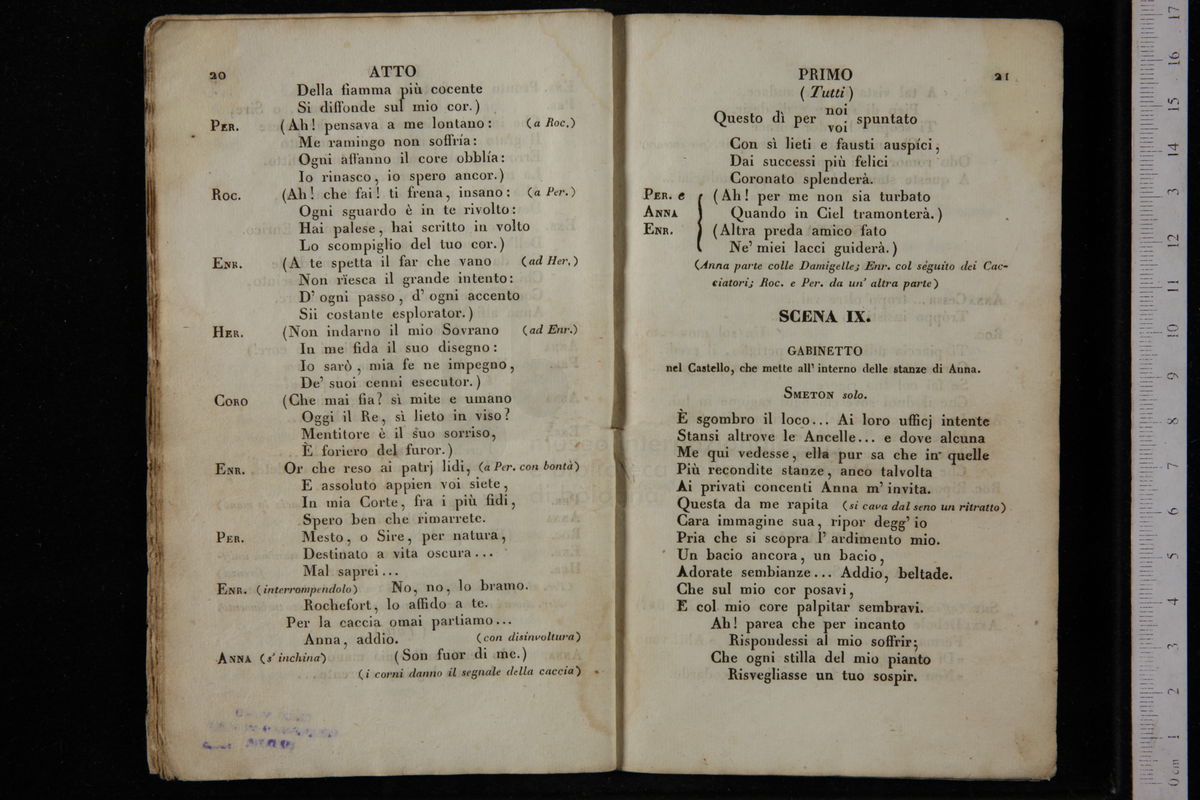 20 ATTO
Della fiamma più cocente
Si diffonde sul mio cor.)
PER. (Ah! pensava a me lontano: (a Roc.)
Me ramingo non soffría:
Ogni affanno il core obblía:
Io rinasco, io spero ancor.)
ROC. (Ah! che fai! ti frena, insano: (a Per.)
Ogni sguardo è in te rivolto:
Hai palese, hai scritto in volto
Lo scompiglio del tuo cor.)
ENR. (A te spetta il far che vano (ad Her.)
Non rïesca il grande intento:
D' ogni passo, d' ogni accento
Sii costante esplorator.)
HER. (Non indarno il mio Sovrano (ad Enr.)
In me fida il suo disegno:
Io sarò, mia fe ne impegno,
De' suoi cenni esecutor.)
CORO (Che mai fia? sì mite e umano
Oggi il Re, sì lieto in viso?
Mentitore è il suo sorriso,
È foriero del furor.)
ENR. Or che reso ai patrj lidi, (a Per. con bontà)
E assoluto appien voi siete,
In mia Corte, fra i più fidi,
Spero ben che rimarrete.
PER. Mesto, o Sire, per natura,
Destinato a vita oscura...
Mal saprei...
ENR. (interrompendolo) No, no, lo bramo.
Rochefort, lo affido a te.
Per la caccia omai partiamo...
Anna, addio. (con disinvoltura)
ANNA (s' inchina) (Son fuor di me.)
(i corni danno il segnale della caccia)
PRIMO 21
(Tutti)
Questo dì per noi voi spuntato
Con sì lieti e fausti auspíci,
Dai successi più felici
Coronato splenderà.
PER. e (Ah! per me non sia turbato
ANNA Quando in Ciel tramonterà.)
ENR. (Altra preda amico fato
Ne' miei lacci guiderà.)
(Anna parte colle Damigelle; Enr. col séguito dei Cac-
ciatori; Roc. e Per. da un' altra parte)
SCENA IX.
GABINETTO
nel Castello, che mette all' interno delle stanze di Anna.
SMETON solo.
È sgombro il loco... Ai loro ufficj intente
Stansi altrove le Ancelle... e dove alcuna
Me qui vedesse, ella pur sa che in quelle
Più recondite stanze, anco talvolta
Ai privati concenti Anna m' invita.
Questa da me rapita (si cava dal seno un ritratto)
Cara immagine sua, ripor degg' io
Pria che si scopra l' ardimento mio.
Un bacio ancora, un bacio,
Adorate sembianze... Addio, beltade.
Che sul mio cor posavi,
E col mio core palpitar sembravi.
Ah! parea che per incanto
Rispondessi al mio soffrir;
Che ogni stilla del mio pianto
Risvegliasse un tuo sospir.